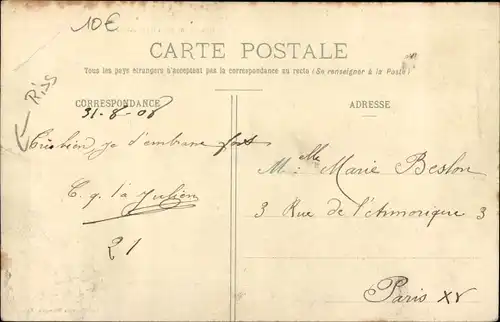 10€
CARTE POSTALE
Tous les pays étrangers n'acceptent pas la correspondance au recto (Se renseigner à la Poste)
Riss
CORRESPONDANCE
ADRESSE
31-8-08
bien, je t'embrasse fort
Mlle Marie Beslon
Julien
3 Rue de l'Armorique 3
21
Paris XV